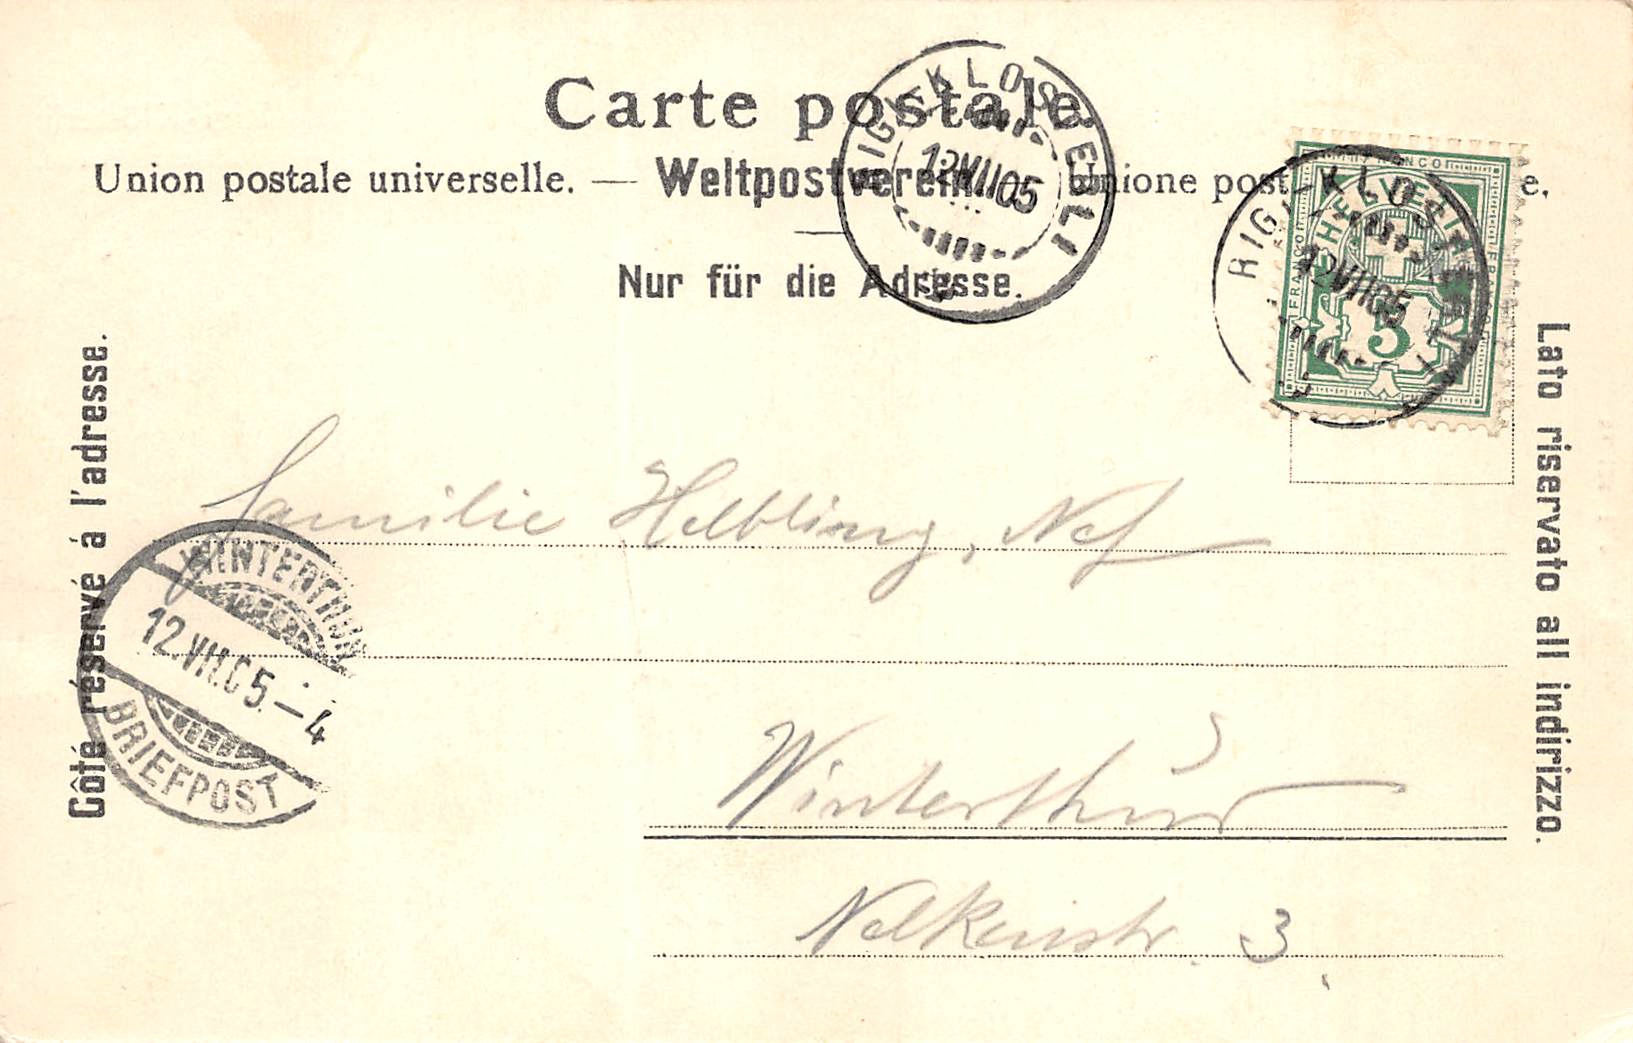 Carte postale.
Union postale universelle. — Weltpostverein. — Unione post e.
Nur für die Adresse.
RIGI-KLÖSTERLI
12 VII 05
RIGI-KLÖSTERLI
12 VII 05
FRANCO
HELVETIA
FRANCO
5
Côté réservé á l'adresse.
Lato riservato all indirizzo.
Familie Helbling, Nef
WINTERTHUR
12.VII.05.–4
BRIEFPOST
Winterthur
Nelkenstr. 3